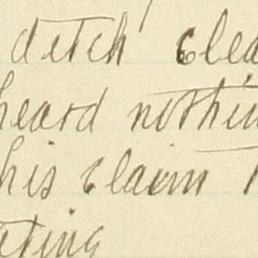 ditch clea
heard nothin
his claim
ating